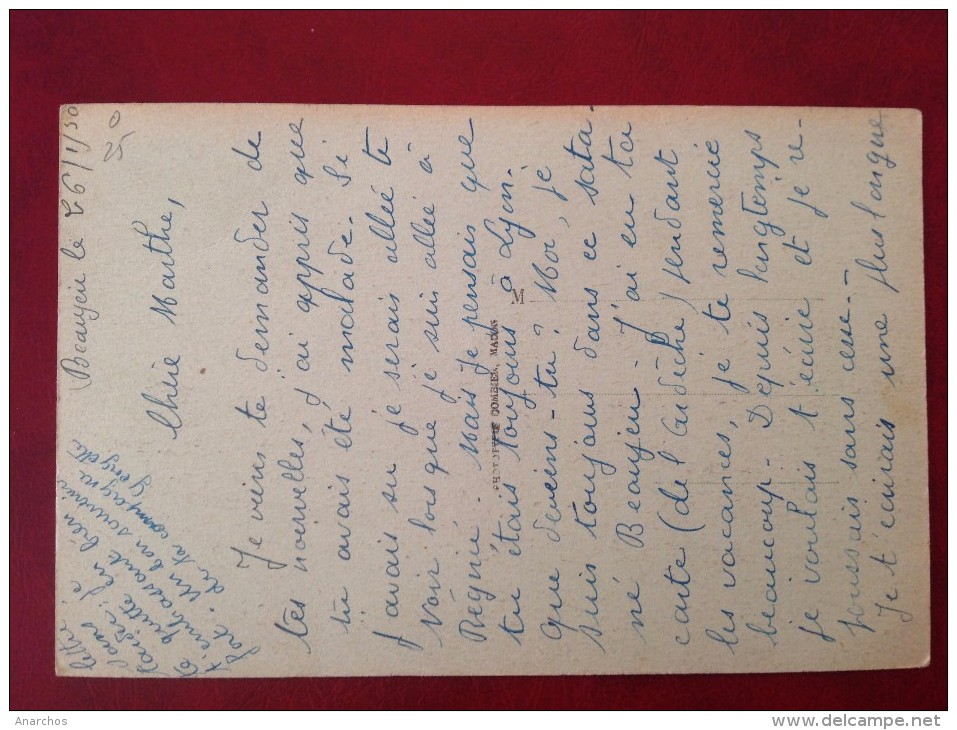 Beaujeu le 26/1/50
0
25
Chère Marthe,
Je viens te demander de
tes nouvelles, j'ai appris que
tu avais été malade. Si
j'avais su je serais allée te
voir lorsque je suis allée à
Régnié. Mais je pensais que
tu étais toujours à Lyon.
que deviens-tu? Moi, je
suis toujours dans ce sata-
né Beaujeu. J'ai eu ta
carte (de l'Ardèche) pendant
les vacances, je te remercie
beaucoup. Depuis longtemps
je voulais t'écrire et je re-
poussais sans cesse.-
Je t'écrirais une plus longue
lettre
je
quitte en
t'embrassant bien
fort. Un bon souvenir
de ta compagne
M
PHOTOTYPIE COMBIER, MACON
Anarchos
www.delcampe.net